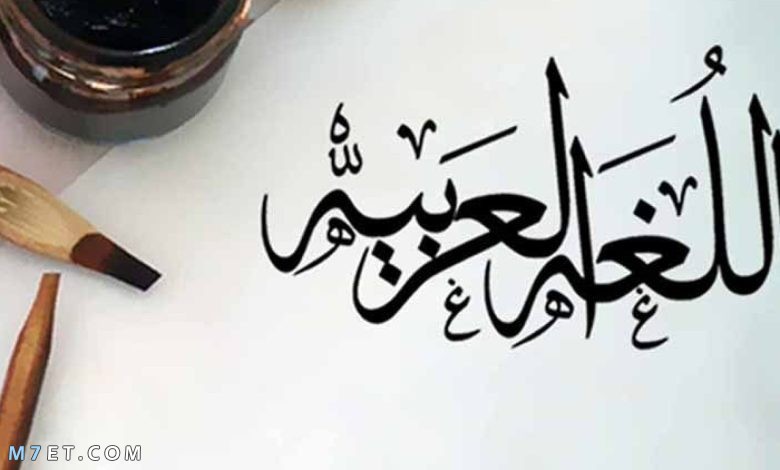 اللُّغه العربيه
M7ET.COM